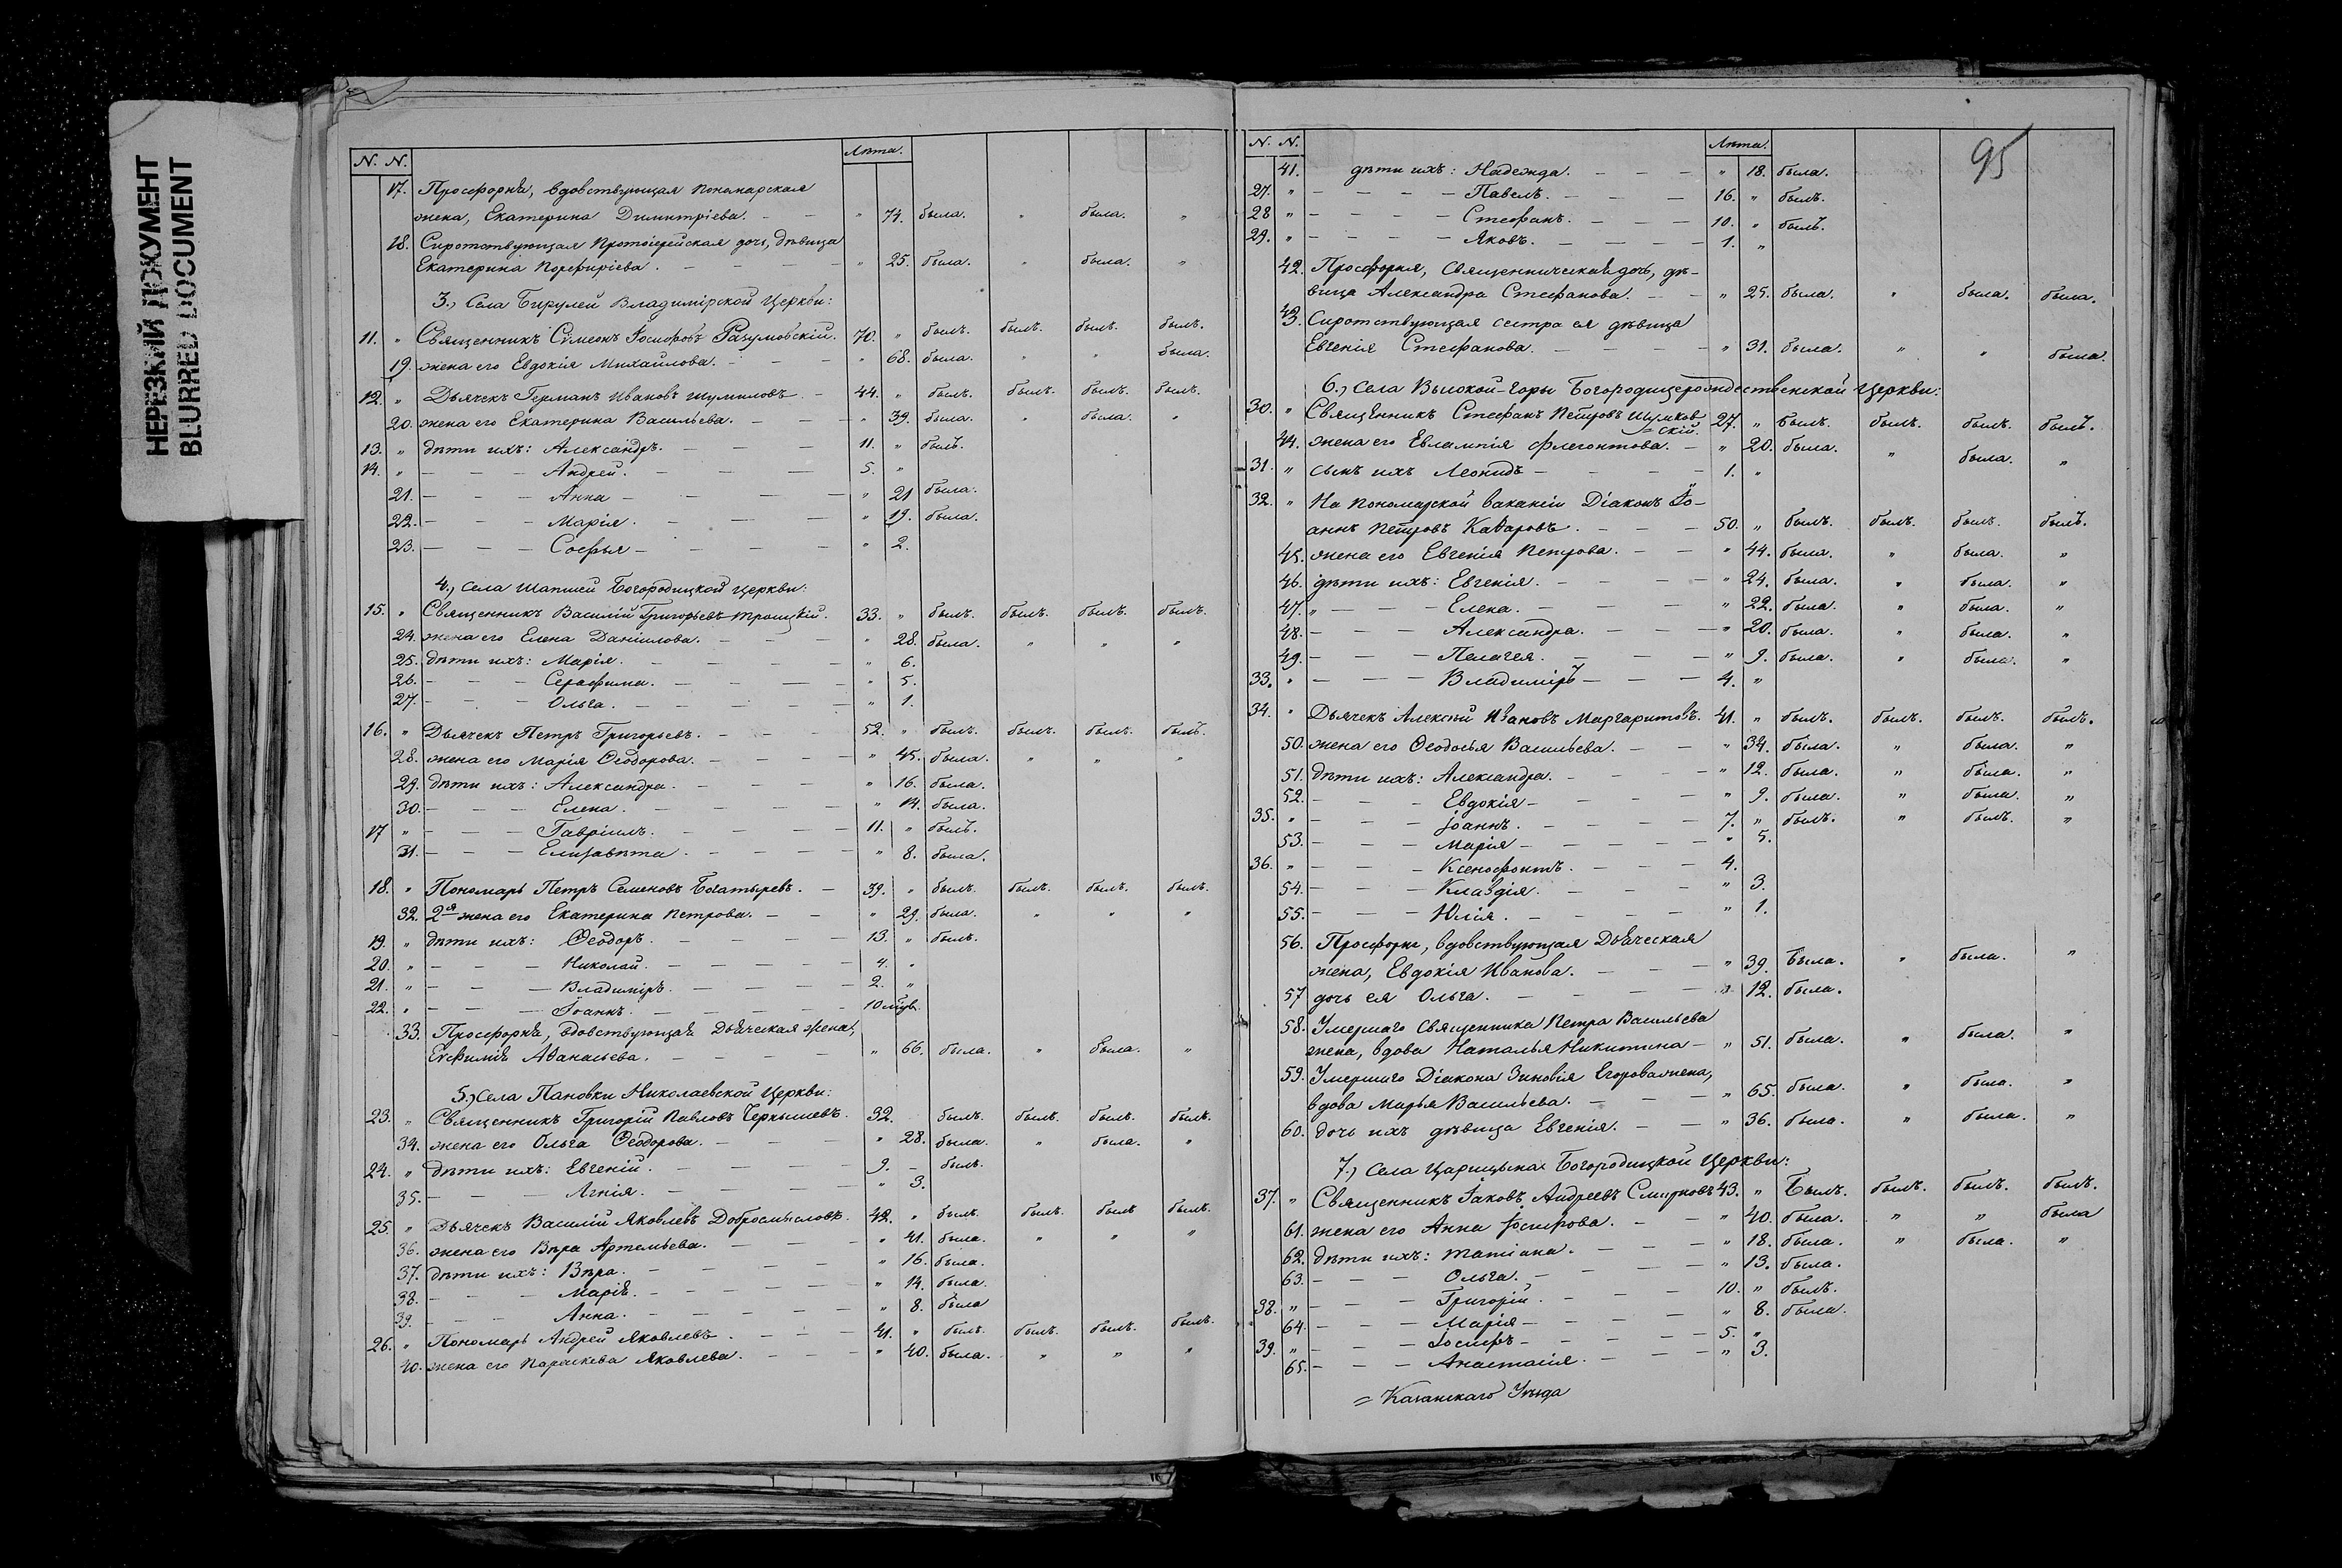 НЕРЕЗКИЙ ДОКУМЕНТ
BLURRED DOCUMENT
N. N. Лѣта.
17. Просфорня, вдовствующая Пономарская
жена, Екатерина Димитріева. - - " 74. была. " была. "
18. Сиротствующая Протоіерейская дочь, дѣвица
Екатерина Порфиріева. - - - - " 25. была. " была. "
3., Села Бирулей Владимірской Церкви:
11. " Священникъ Сѵмеонъ Іосифовъ Разумовскій. 70. " былъ. былъ. былъ. былъ.
19. жена его Евдокія Михайлова. - - - " 68. была. " " была.
12. " Дьячекъ Германъ Ивановъ Шумиловъ - 44. " былъ. былъ. былъ. былъ.
20. жена его Екатерина Васильева. - - - " 39. была. " была. "
13. " дѣти ихъ: Александръ. - - - 11. " былъ.
14. " - - - Андрей. - - - 5. "
21. - - - Анна - - - - " 21 была.
22. - - - Марія. - - - - " 19. была.
23. - - - Софья - - - - " 2.
4., Села Шапшей Богородицкой Церкви:
15. " Священникъ Василій Григорьевъ Троицкій. 33. " былъ. былъ. былъ. былъ.
24. жена его Елена Даніилова. - - - " 28. была. " " "
25. дѣти ихъ: Марія. - - - - " 6.
26. - - - Серафима. - - - - " 5.
27. - - - Ольга. - - - - " 1.
16. " Дьячекъ Петръ Григорьевъ. - - - 52. " былъ. былъ. былъ. былъ.
28. жена его Марія Ѳеодорова. - - - - " 45. была. " " "
29. дѣти ихъ: Александра. - - - - " 16. была.
30. - - - Елена. - - - - " 14. была.
17 " - - - Гавріилъ. - - - - 11. " былъ.
31. - - - Елизавѣта. - - - - " 8. была.
18. " Пономарь Петръ Семеновъ Богатыревъ. - 39. " былъ. былъ. былъ. былъ.
32. 2я жена его Екатерина Петрова. - - " 29. была. " " "
19. " дѣти ихъ: Ѳеодоръ. - - - - 13. " былъ.
20. " - - - Николай. - - - - 4. "
21. " - - - Владиміръ. - - - - 2. "
22. " - - - Іоаннъ. - - - - 10
33. Просфорня, вдовствующая Дьяческая жена,
Евфимія Аѳанасьева. - - - - " 66. была. " была. "
5., Села Пановки Николаевской Церкви:
23. " Священникъ Григорій Павловъ Чернышевъ. 32. былъ. былъ. былъ. былъ.
34. жена его Ольга Ѳеодорова. - - - " 28. была. " была. "
24. " дѣти ихъ: Евгеній. - - - - 9. - былъ.
35. - - - Агнія. - - - - " 3.
25. " Дьячекъ Василій Яковлевъ Добросмысловъ. 42. " былъ. былъ. былъ былъ.
36. жена его Вѣра Артемьева. - - - " 41. была. " " "
37. дѣти ихъ: Вѣра. - - - - " 16. была.
38. - - - Марія. - - - - " 14. была.
39. - - - Анна. - - - - " 8. была
26. " Пономарь Андрей Яковлевъ. - - - 41. " былъ. былъ. былъ. былъ.
40. жена его Параскева Яковлева. - - - " 40. была. " " "
95
N. N. Лѣта.
41. дѣти ихъ: Надежда. - - - " 18. была.
27. " - - - - Павелъ. - - - 16. " былъ.
28 " - - - - Стефанъ. - - - 10. " былъ.
29. " - - - - Яковъ. - - - - 1. "
42. Просфорня, Священническая дочь, дѣ-
вица Александра Стефанова. - - " 25. была. " была. была.
43. Сиротствующая сестра ея дѣвица
Евгенія Стефанова. - - - - " 31. была. " " была.
6., Села Высокой-Горы Богородицерождественской Церкви:
30. " Священникъ Стефанъ Петровъ Шумков-
скій. 27. " былъ. былъ. былъ. былъ.
44. жена его Евлампія Флегонтова. - " 20. была. " была. "
31. " сынъ ихъ Леонидъ - - - - 1. "
32. " На Пономарской ваканіи Діаконъ Іо-
аннъ Петровъ Каѳаровъ. - - - 50. " былъ. былъ. былъ. былъ.
45. жена его Евгенія Петрова. - - " 44. была. " была. "
46. дѣти ихъ: Евгенія. - - - - " 24. была. " была. "
47. " - - - Елена. - - - - " 22. была. " была. "
48. - - - Александра. - - - " 20. была. " была. "
49. - - - Пелагея. - - - - " 9. была. " была. "
33. " - - - Владиміръ - - - 4. "
34. " Дьячекъ Алексѣй Ивановъ Маргаритовъ. 41. " былъ. былъ. былъ. былъ.
50. жена его Ѳеодосья Васильева. - - " 34. была. " была. "
51. дѣти ихъ: Александра. - - - - " 12. была. " была. "
52. - - - Евдокія - - - - " 9. была. " была. "
35. " - - - Іоаннъ. - - - - 7. " былъ. " былъ. "
53. - - - Марія - - - - " 5.
36. " - - - Ксенофонтъ. - - - 4.
54. - - - Клавдія. - - - - " 3.
55. - - - Юлія. - - - - " 1.
56. Просфорня, вдовствующая Дьяческая
жена, Евдокія Иванова. - - - " 39. была. " была. "
57 дочь ея Ольга. - - - - " 12. была.
58. Умершаго Священника Петра Васильева
жена, вдова Наталья Никитина - " 51. была. " была. "
59. Умершаго Діакона Зиновія Егорова жена,
вдова Марья Васильева. - - - " 65. была. " была. "
60. дочь ихъ дѣвица Евгенія. - - " 36. была. " была. "
7., Села Царицына Богородицкой Церкви:
37. " Священникъ Іаковъ Андреевъ Смирновъ 43. " былъ. былъ. былъ. былъ.
61. жена его Анна Іосифова. - - " 40. была. " " была
62. дѣти ихъ: Татіана. - - - - " 18. была. " была. "
63. - - - Ольга. - - - - " 13. была.
38. " - - - Григорій. - - - - 10. " былъ.
64. - - - Марія - - - - " 8. была.
39. " - - - Іосифъ - - - - 5. "
65. - - - Анастасія. - - - " 3.
= Казанскаго Уѣзда